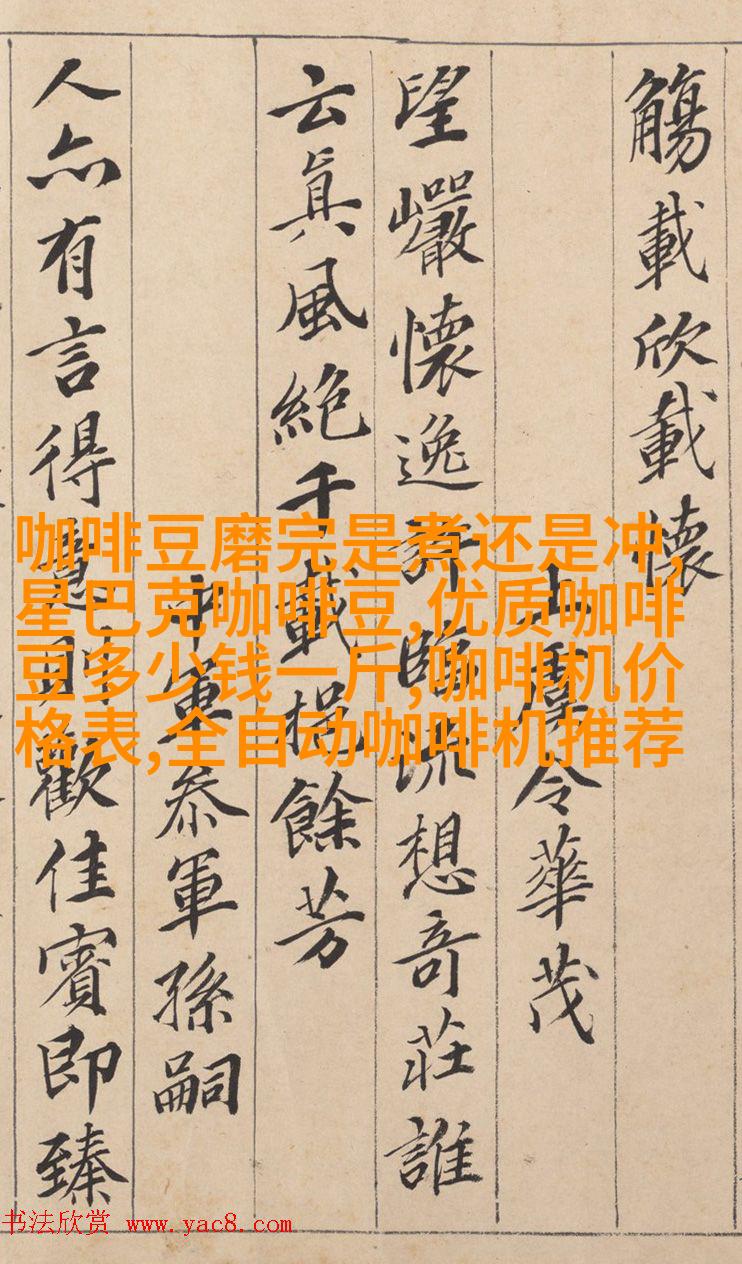 觴載欣載懷
上虞令華茂
望巗懷逸許臨流想奇莊誰
云眞風絕千載挹餘芳
中軍叅軍孫嗣
人亦有言得意則歡佳賓即臻
咖啡豆磨完是煮还是冲,
星巴克咖啡豆,优质咖啡
豆多少钱一斤,咖啡机价
格表,全自动咖啡机推荐
书法欣赏 www.yac8.com